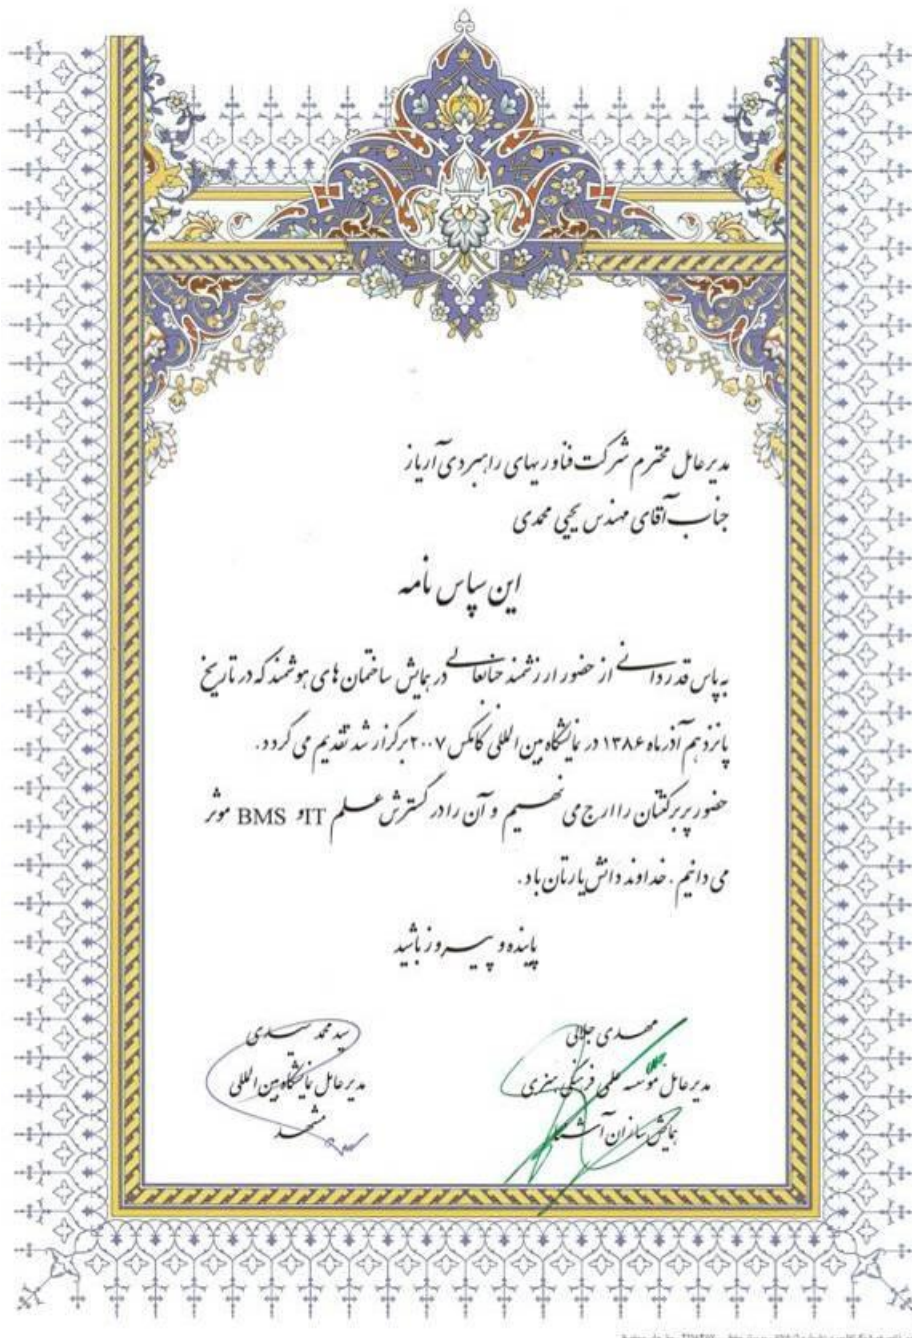 مدیر عامل محترم شرکت فناوریهای راهبردی آریاز
جناب آقای مهندس یحیی محمدی
این سپاس نامه
به پاس قدردانی از حضور ارزشمند جنابعالی در همایش ساختمان های هوشمند که در تاریخ
پانزدهم آذر ماه ۱۳۸۶ در نمایشگاه بین المللی کامکس ۲۰۰۷ برگزار شد تقدیم می گردد.
حضور پربرکتتان را ارج می نهیم و آن را در گسترش علم IT و BMS موثر
می دانیم. خداوند دانش یارتان باد.
پاینده و پیروز باشید
مهدی جلالی
سید محمد
مدیر عامل موسسه علمی فرهنگی هنری
مدیر عامل نمایشگاه بین المللی
همایش سازان
مشهد